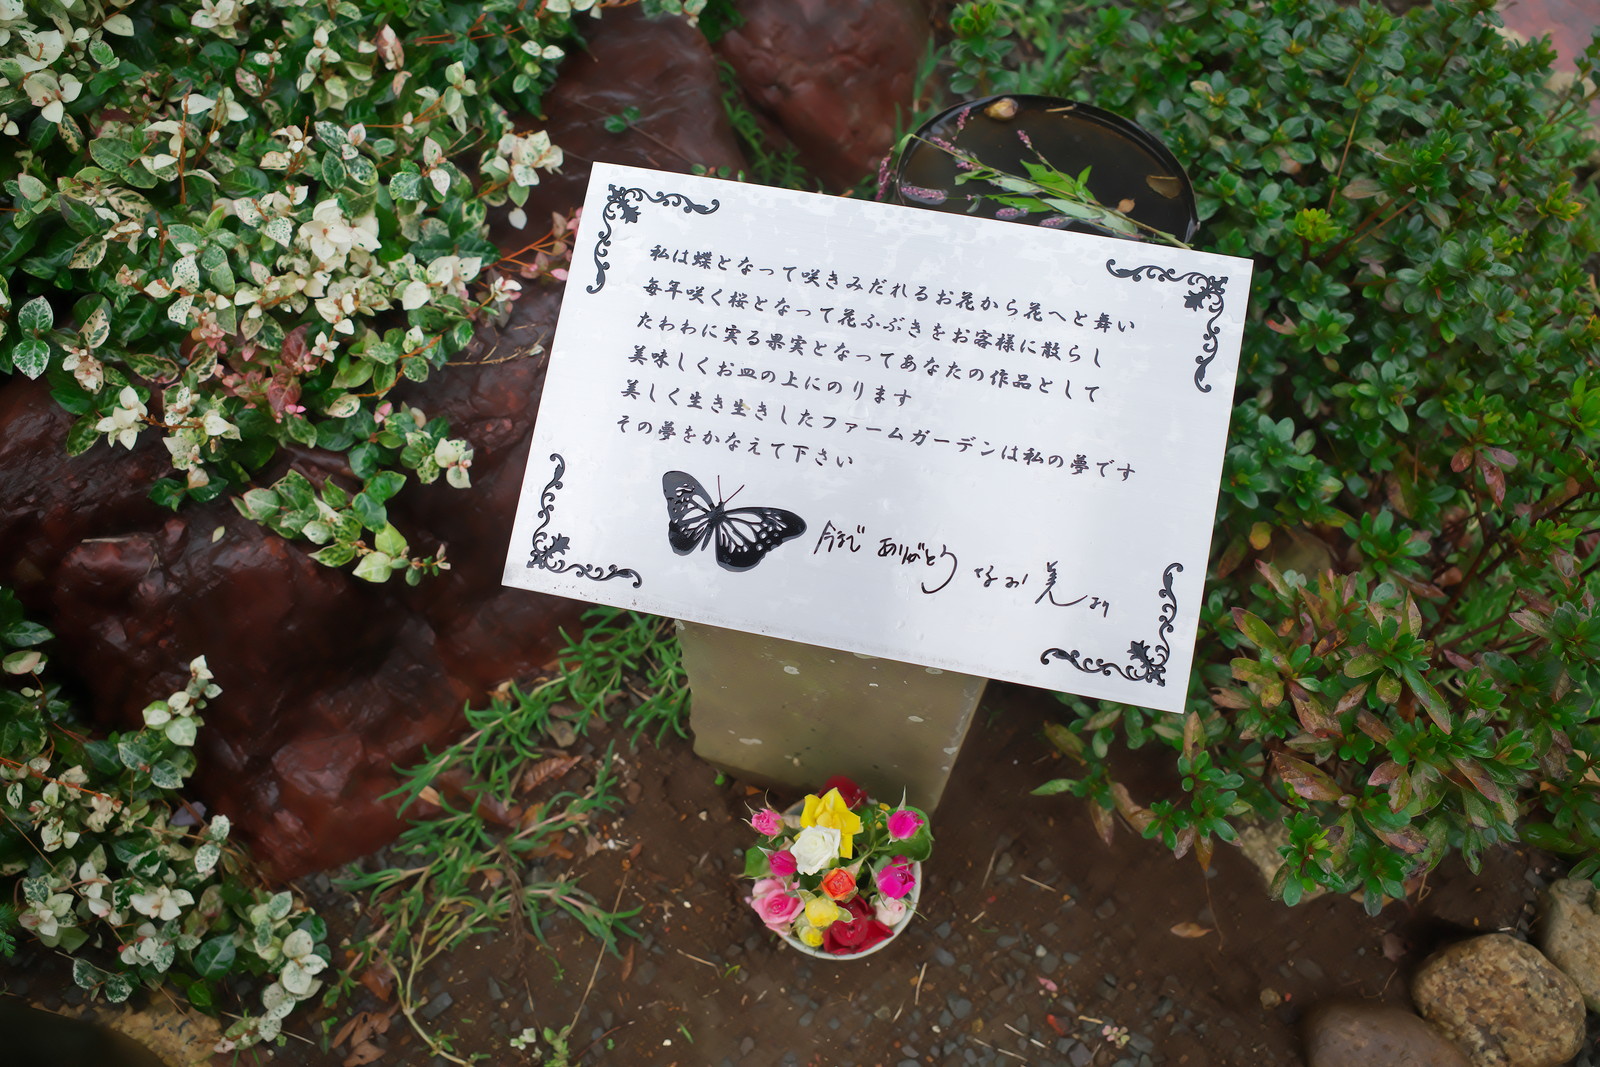 私は蝶となって咲きみだれるお花から花へと舞い
毎年咲く桜となって花ふぶきをお客様に散らし
たわわに実る果実となってあなたの作品として
美味しくお皿の上にのります
美しく生き生きしたファームガーデンは私の夢です
その夢をかなえて下さい
今まで ありがとう なお美より